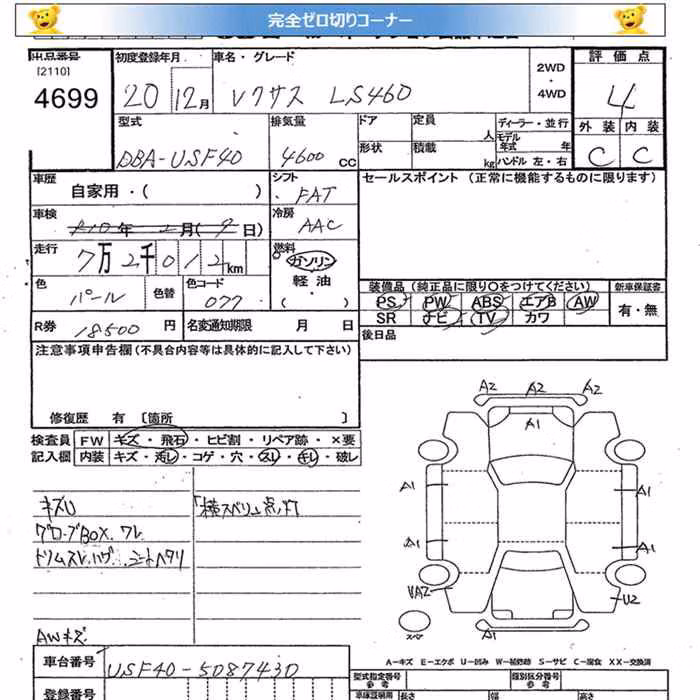 完全ゼロ切りコーナー
出品番号
[2110]
4699
初度登録年月
20 12月
車名・グレード
レクサス LS460
2WD
・
4WD
評価点
4
外装 内装
C C
型式
DBA-USF40
排気量
4600 CC
ドア
定員
人
形状
積載
kg
ディーラー・並行
モデル年式 年
ハンドル 左・右
車歴
自家用・( )
シフト
FAT
セールスポイント (正常に機能するものに限ります)
車検
年 月( 日)
冷房
AAC
走行
7万2千012km
燃料
ガソリン
軽油
( ・ )
色
パール
色替
色コード
077
装備品 (純正品に限り〇をつけてください)
PS PW ABS エアB AW
SR ナビ TV カワ
新車保証書
有・無
R券 18500 円
名変通知期限 月 日
後日品
注意事項申告欄(不具合内容等は具体的に記入して下さい)
修復歴 有 [箇所 ]
検査員
記入欄
FW キズ・飛石・ヒビ割・リペア跡・×要
内装 キズ・汚レ・コゲ・穴・スレ・キレ・破レ
キズU
グローブBOX ワレ
シートヘタリ
「横スベリ」点灯
AWキズ
A2 A2 A2
A1
A1 A1
A1 A1
U2
スペ
A1
A-キズ E-エクボ U-凹み W-補修跡 S-サビ C-腐食 XX-交換済
車台番号
USF40-5087430
登録番号
型式指定番号
参考
類別区分番号
参考
長さ
幅
高さ